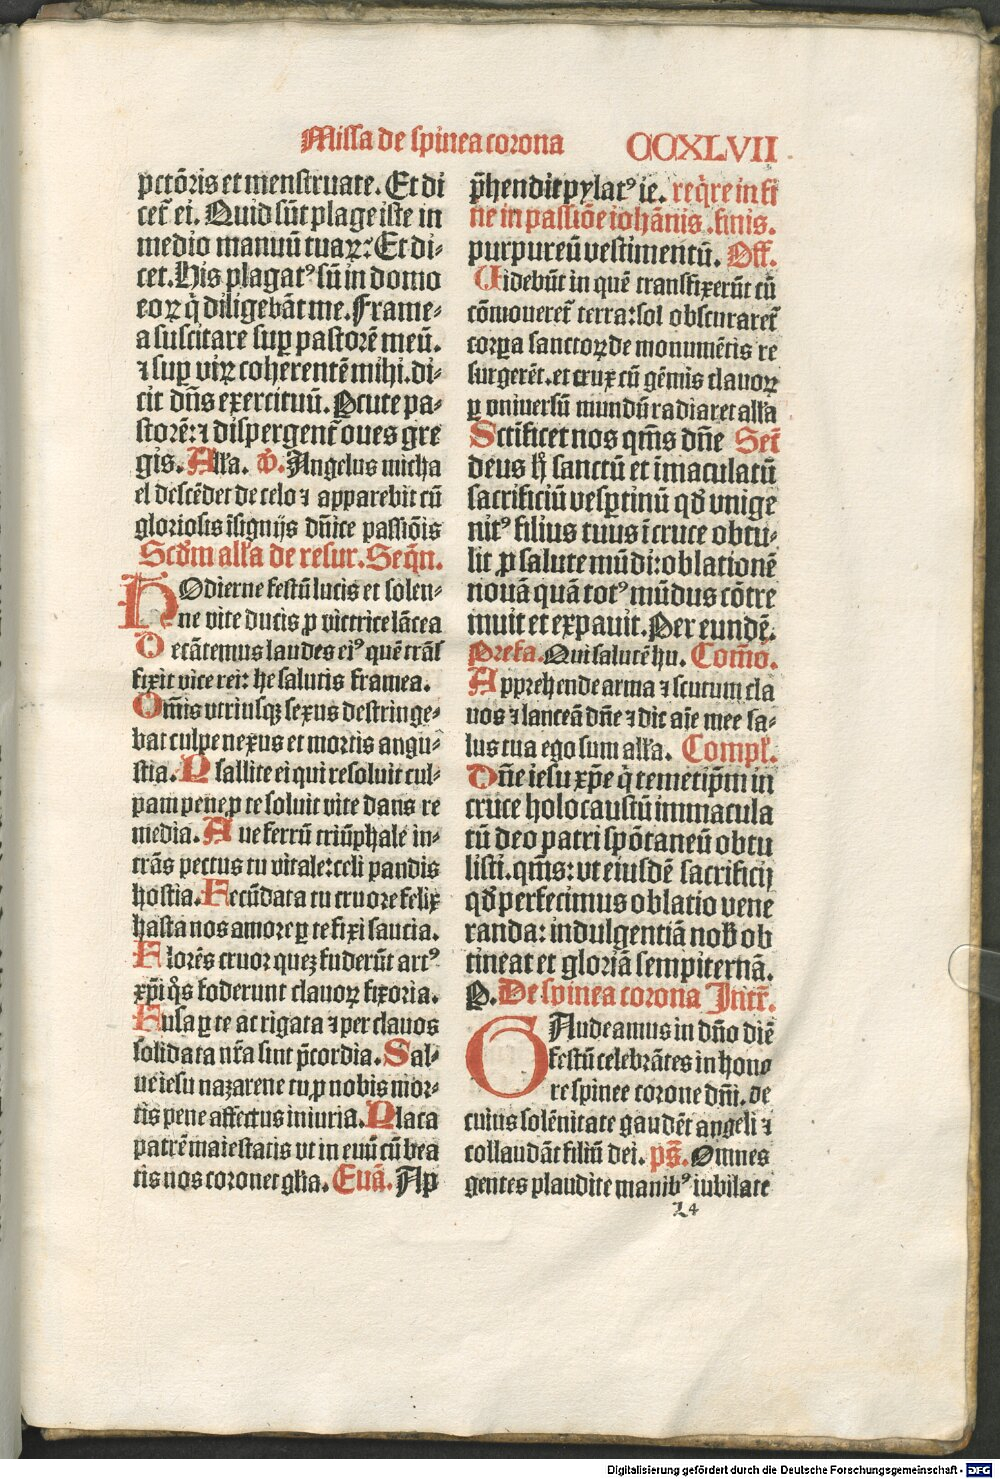 Missa de spinea corona CCXLVII
pctōris et menstruate. Et di
cet̄ ei. Quid sūt plage iste in
medio manuū tuaꝝ: Et di-
cet. His plagatꝰ sū in domo
eoꝝ q̇ diligebāt me. Frame-
a suscitare suꝑ pastorē meū.
⁊ suꝑ viꝝ coherentē mihi. di-
cit dn̄s exercituū. Ꝑcute pa-
storē: ⁊ dispergent̄ oues gre
gis. All'a. ℣. Angelus micha
el descēdet de celo ⁊ apparebit cū
gloriosis īsignijs dn̄ice passiōis
Scd̄m all'a de resur. Seq̄n.
HOdierne festū lucis et solen-
ne vite ducis ꝓ victrice lācea
Decātemus laudes eiꝰ quē trāſ
fixit vice rei: he salutis framea.
Om̄is vtriusqꝫ sexus destringe-
bat culpe nexus et mortis angu-
stia. Psallite ei qui resoluit cul-
pam pene ꝑ te soluit vite dans re
media. Aue ferrū triūphale in-
trās pectus tu vitale: celi pandis
hostia. Fecūdata tu cruore felix
hasta nos amore ꝑ te fixi saucia.
Florēs cruor quez fuderūt artꝰ
xp̄i q̊s foderunt clauoꝝ fixoria.
Fusa ꝑ te ac rigata ⁊ per clauos
solidata nr̄a sint p̄cordia. Sal-
ue iesu nazarene tu ꝓ nobis mor-
tis pene affectus iniuria. Placa
patrē maiestatis vt in euū cū bea
tis nos coronet gl'ia. Euā. Ap
p̄hendit pylatꝰ ie. req̇re in fi
ne in passiōe iohānis. finis.
purpureū vestimentū. Off.
Uidebūt in quē transfixerūt cū
cōmoueret̄ terra: sol obscuraret̄
corꝑa sanctoꝝ de monumētis re
surgerēt. et crux cū gēmis clauoꝝ
ꝑ vniuersū mundū radiaret all'a
Sctificet nos qm̄s dn̄e Sec̄
deus h̊ sanctū et imaculatū
sacrificiū vesꝑtinū qđ vnige
nitꝰ filius tuus ī cruce obtu-
lit ꝓ salute mūdi: oblationē
nouā quā totꝰ mūdus cōtre
muit et expauit. Per eundē.
Prefa. Qui salutē hu. Com̄o.
Apprehende arma ⁊ scutum cla
uos ⁊ lanceā dn̄e ⁊ dic aīe mee sa-
lus tua ego sum all'a. Compl'.
Dn̄e iesu xp̄e q̇ temetip̄m in
cruce holocaustū immacula
tū deo patri spōtaneū obtu
listi. qm̄s: vt eiusdē sacrificij
qđ perfecimus oblatio vene
randa: indulgentiā nob̄ ob
tineat et gloriā sempiternā.
Ꝑ. De spinea corona Intr̄.
GAudeamus in dn̄o diē
festū celebrātes in hono
re spinee corone dn̄i. de
cuius solēnitate gaudēt angeli ⁊
collaudāt filiū dei. ps̄. Omnes
gentes plaudite manibꝰ iubilate
L4
Digitalisierung gefördert durch die Deutsche Forschungsgemeinschaft - DFG